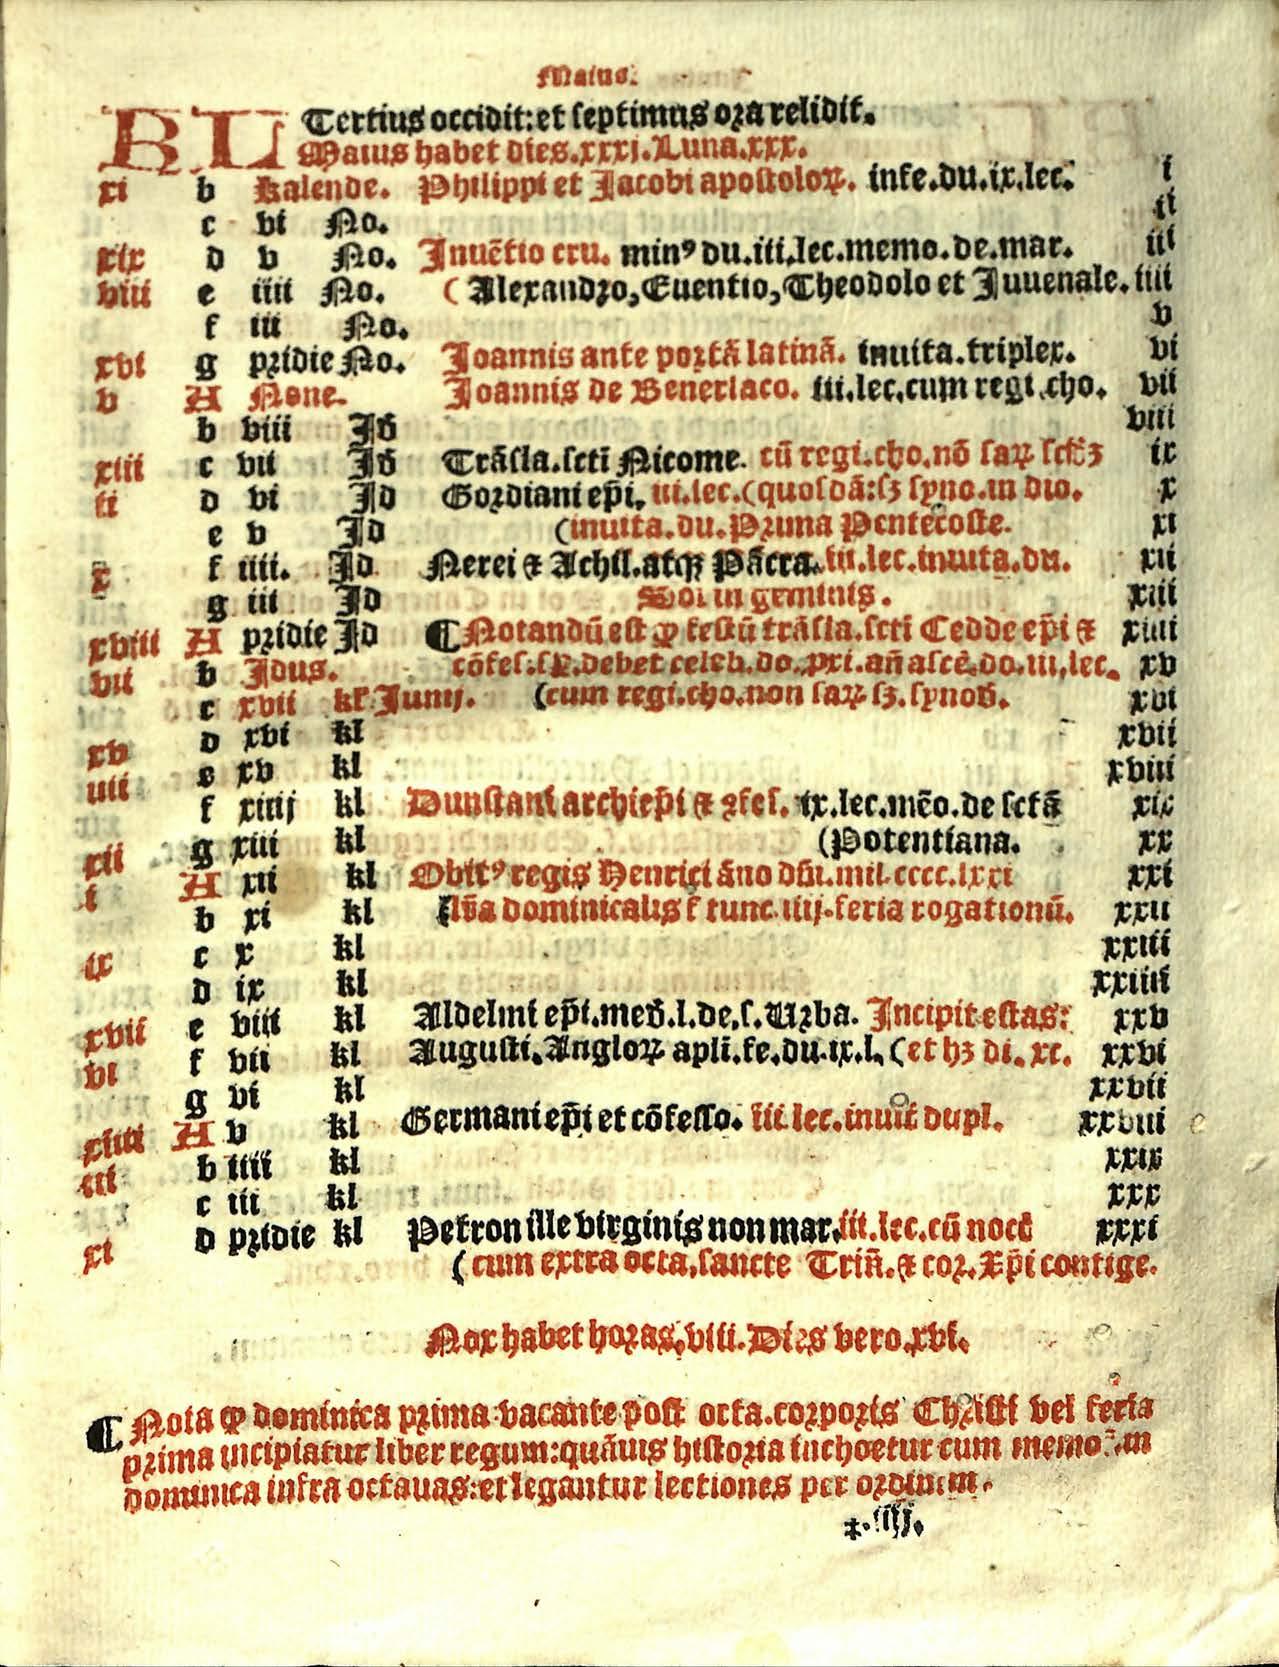 Maius.
KL Tertius occidit: et septimus ora relidit.
Maius habet dies.xxxj.Luna.xxx.
xi b Kalende. Philippi et Jacobi apostoloꝝ. infe.du.ix.lec. i
c vi No. ii
xix d v No. Inuẽtio cru. minꝰ du.iii.lec.memo.de.mar. iii
viii e iiii No. (Alexandro,Euentio,Theodolo et Juuenale. iiii
f iii No. v
xvi g pridie No. Joannis ante portã latinã. inuita.triplex. vi
v A None. Joannis de Beuerlaco. iii.lec.cum regi.cho. vii
b viii Id viii
xiii c vii Id Trãsla.scti Nicome. cũ regi.cho.nõ saꝝ ix
ii d vi Id Gordiani ep̃i. iii.lec.(quosdã:sꝫ syno.in dio. x
e v Id (inuita.du.Pruna Pentecoste. xi
x f iiii. Id Nerei ⁊ Achil.atqꝫ Pãcra.iii.lec.inuita.du. xii
g iii Id Sol in geminis. xiii
xviii A pridie Id ¶Notandũ est ꝙ festũ trãsla.scti Cedde ep̃i ⁊ xiiii
vii b Idus. cõfes.sꝑ.debet celeb.do.pri.añ ascẽ.do.iii.lec. xv
c xvii kl Junij. (cum regi.cho.non saꝝ sꝫ.synod. xvi
xv d xvi kl xvii
iiii e xv kl xviii
f xiiij kl Dunstani archiep̃i ⁊ ꝯfes. ix.lec.mẽo.de sctã xix
xii g xiii kl (Potentiana. xx
i A xii kl Obitꝰ regis Henrici ãno dñi.mil.cccc.lxxi xxi
b xi kl dominicalis f tunc.iiij.feria rogationũ. xxii
ix c x kl xxiii
d ix kl xxiiii
xvii e viii kl Aldelmi ep̃i.med.l.de.s.Urba. Incipit estas: xxv
vi f vii kl Augusti.Angloꝝ apli.fe.du.ix.l.(et hꝫ di.xc. xxvi
g vi kl xxvii
xiiii A v kl Germani ep̃i et cõfesso. iii.lec.inuit dupl. xxviii
iii b iiii kl xxix
c iii kl xxx
xi d pridie kl Petronille virginis non mar.iii.lec.cũ noct xxxi
(cum extra octa.sancte Triñ.⁊ cor.Xp̃i contige.
Nox habet horas.viii.Dies vero.xvi.
¶ Nota ꝙ dominica prima vacante post octa.corporis Christi vel feria
prima incipiatur liber regum:quãuis historia inchoetur cum memo.in
dominica infra octauas:et legantur lectiones per ordinem.
‡.iiij.